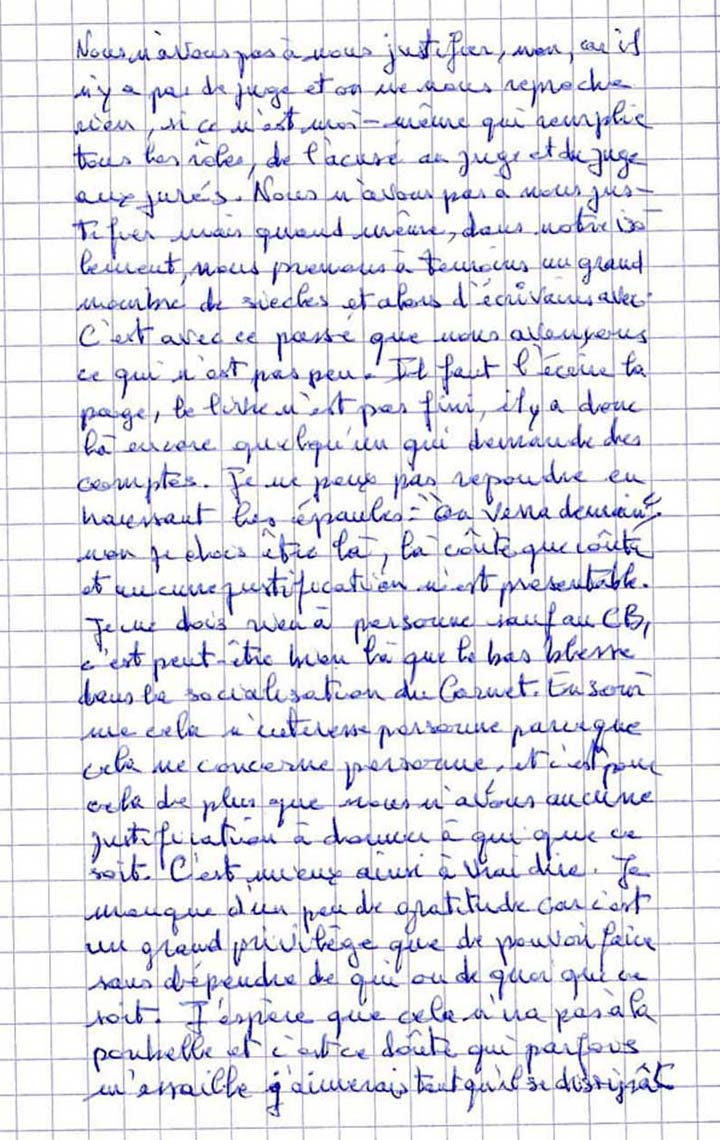 Nous n'avons pas à nous justifier, non, car il
n'y a pas de juge et on ne nous reproche
rien, si ce n'est moi-même qui remplie
tous les rôles, de l'acusé au juge et du juge
aux jurés. Nous n'avons pas à nous jus-
tifier mais quand même, dans notre iso
lement, nous prenons à temoins un grand
nombre de siecles et alors d'écrivains avec.
C'est avec ce passé que nous avançons
ce qui n'est pas peu. Il faut l'écrire la
page, le livre n'est pas fini, il y a donc
là encore quelqu'un qui demande des
comptes. Je ne peux pas repondre en
haussant les épaules = "On verra demain"
non je dois être là, là coûte que coûte
et aucune justification n'est présentable.
Je ne dois rien à personne sauf au CB,
c'est peut-être bien là que le bas blesse
dans la socialisation du Carnet. En som
me cela n'interesse personne parce que
cela ne concerne personne, et c'est pour
cela de plus que nous n'avons aucune
justification à donner à qui que ce
soit. C'est mieux ainsi à vrai dire. Je
manque d'un peu de gratitude car c'est
un grand privilège que de pouvoir faire
sans dépendre de qui ou de quoi que ce
soit. J'espère que cela n'ira pas à la
poubelle et c'est ce doute qui parfois
m'assaille j'aimerais tant qu'il se dissipât